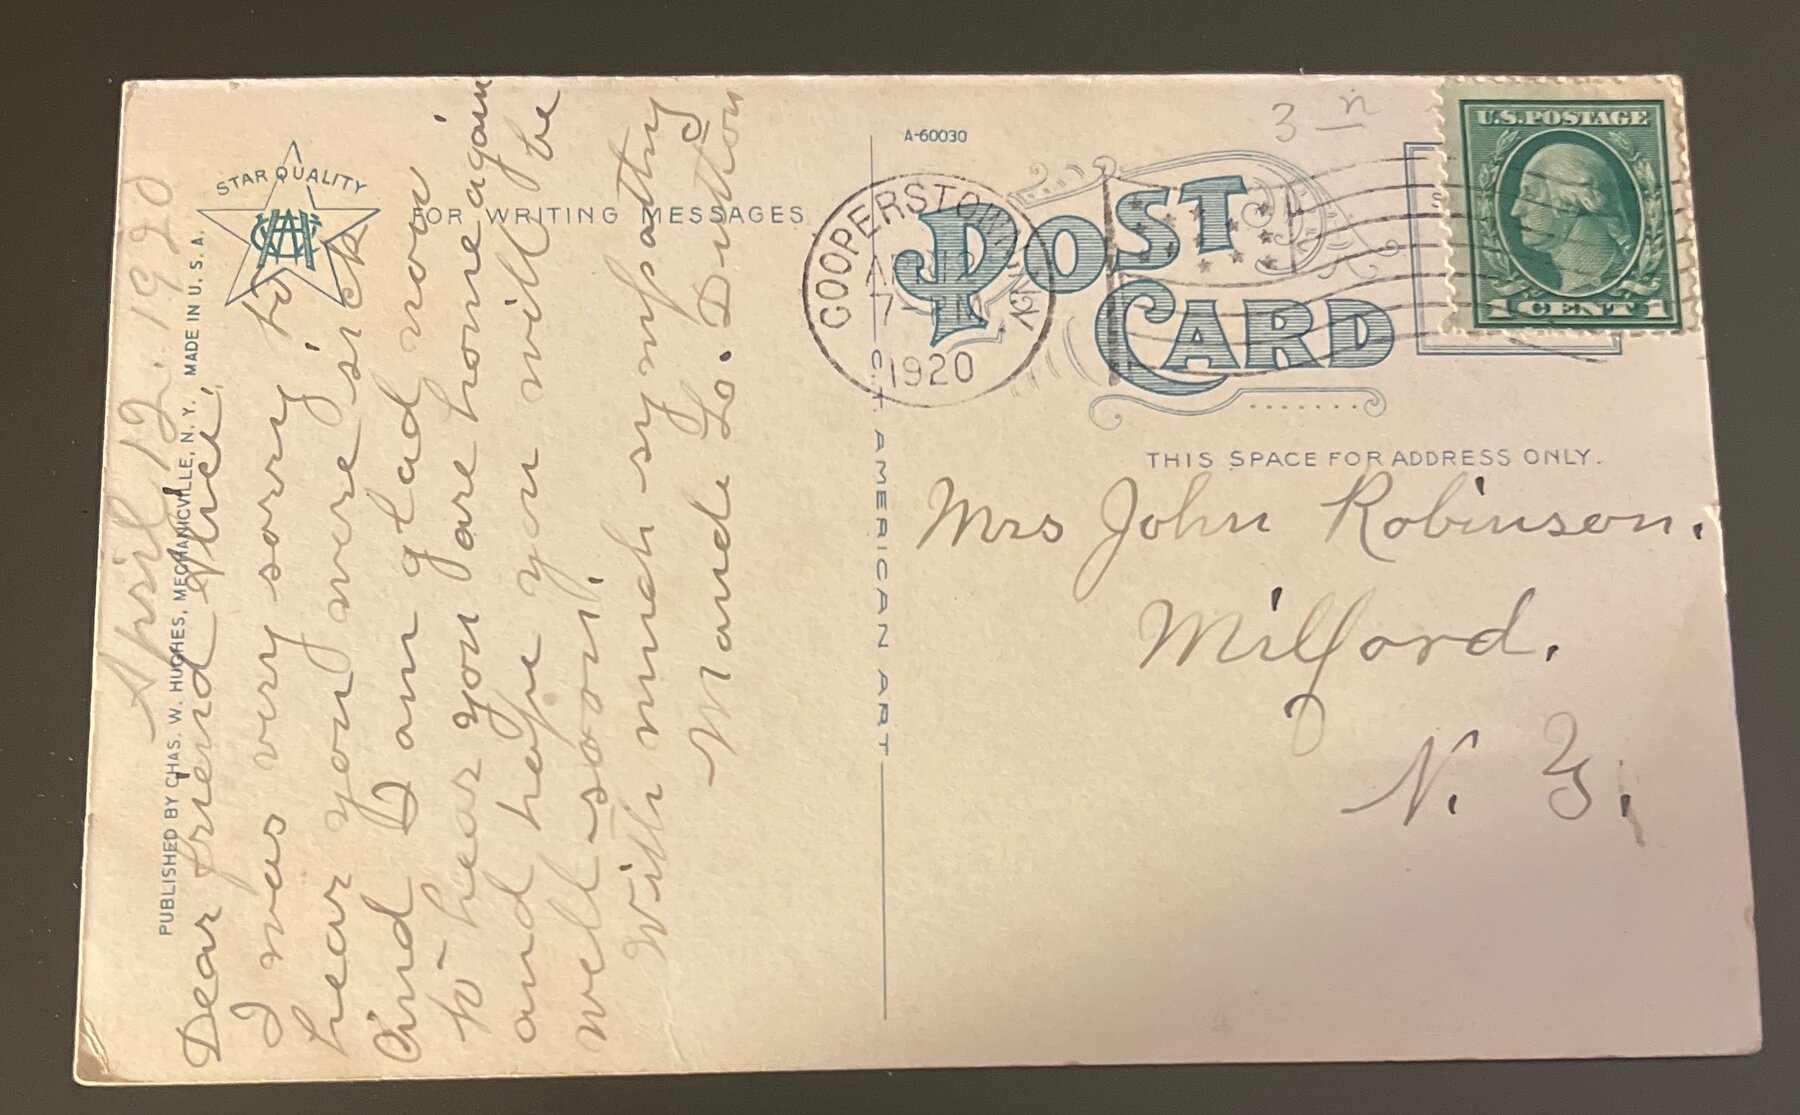 April 12. 1920
Dear friend Alice,
I was very sorry to
hear you were sick
And I am glad now
to hear you are home again
and hope you will be
well soon.
With much sympathy
Maude Lo. Dutton
PUBLISHED BY CHAS. W. HUGHES, MECHANICVILLE, N. Y. MADE IN U. S. A.
STAR QUALITY
FOR WRITING MESSAGES
A-60030
3
POST
CARD
COOPERSTOWN
N.Y.
7- PM
1920
U.S. POSTAGE
1 CENT 1
C. T. AMERICAN ART
THIS SPACE FOR ADDRESS ONLY.
Mrs John Robinson.
Milford.
N. Y.